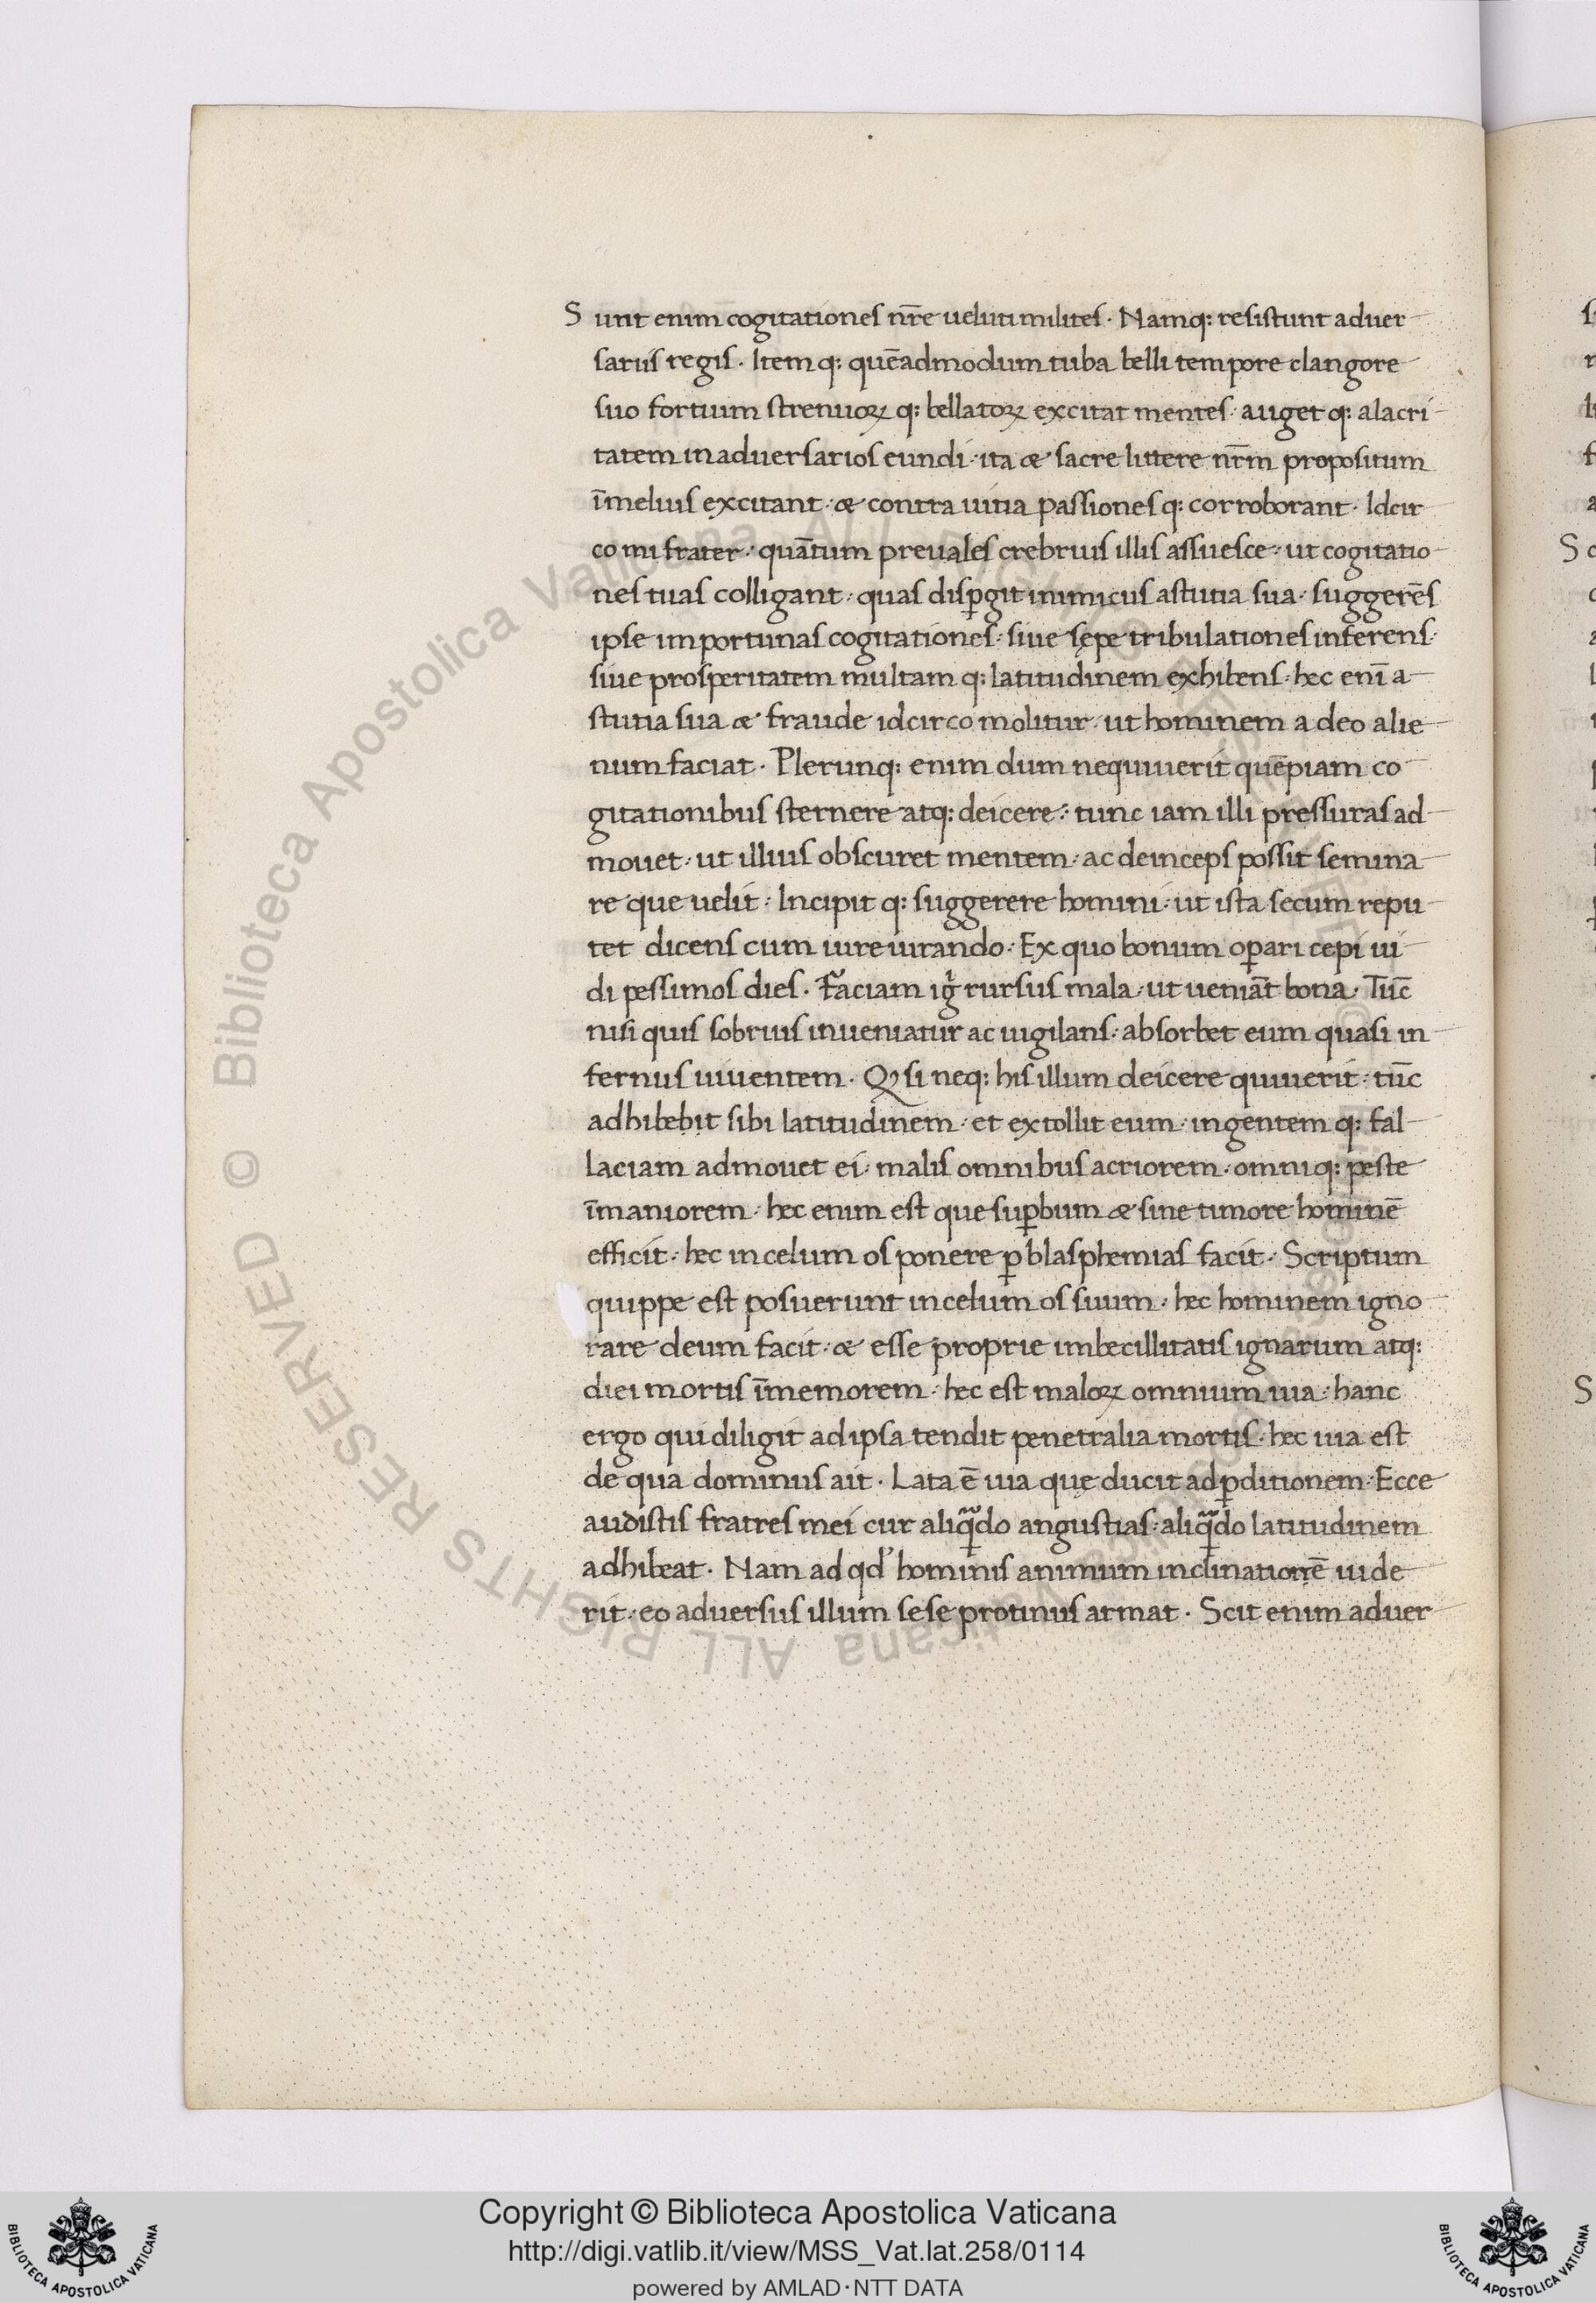 Sunt enim cogitationes nr̄e ueluti milites · Namq: resistunt aduer
sariis regis · Item q: quēadmodum tuba belli tempore clangore
suo fortium strenuoꝝ q: bellatoꝝ excitat mentes · auget q: alacri
tatem in aduersarios eundi · ita æ sacre littere nr̄m propositum
īmelius excitant · æ contra uitia passiones q: corroborant · Idcir
co mi frater · quāntum preuales crebrius illis assuesce · ut cogitatio
nes tuas colligant · quas disꝑgit inimicus astutia sua · suggerēs
ipse importunas cogitationes · siue sępe tribulationes inferens ·
siue prosperitatem multam q: latitudinem exhibens · hec enī a
stutia sua æ fraude idcirco molitur · ut hominem a deo alie
num faciat · Plerunq: enim dum nequiuerit quēpiam co
gitationibus sternere atq: deicere · tunc iam illi pressuras ad
mouet · ut illius obscuret mentem · ac deinceps possit semina
re que uelit · Incipit q: suggerere homini · ut ista secum repu
tet dicens cum iureiurando · Ex quo bonum oꝑari cepi ui
di pessimos dies · Faciam igr̄ rursus mala · ut ueniāt bona · Tūc
nisi quis sobrius inueniatur ac uigilans · absorbet eum quasi in
fernus uiuentem · Qꝙ si neq: his illum deicere quiuerit · tūc
adhibebit sibi latitudinem · et extollit eum · ingentem q: fal
laciam admouet ei · malis omnibus acriorem · omniq: peste
īmaniorem · hec enim est que suꝑbum æ sine timore hominē
efficit · hec in celum os ponere ꝑ blasphemias facit · Scriptum
quippe est posuerunt in celum os suum · hec hominem igno
rare deum facit · æ esse proprie imbecillitatis ignarum atq:
diei mortis īmemorem · hec est maloꝝ omnium uia · hanc
ergo qui diligit ad ipsa tendit penetralia mortis · hec uia est
de qua dominus ait · Lata ē uia quę ducit ad ꝑditionem · Ecce
audistis fratres mei cur aliq̄do angustias · aliq̄do latitudinem
adhibeat · Nam ad qd' hominis animum inclinationē uide
rit · eo aduersus illum sese protinus armat · Scit enim aduer
Copyright © Biblioteca Apostolica Vaticana
http://digi.vatlib.it/view/MSS_Vat.lat.258/0114
powered by AMLAD·NTT DATA
BIBLIOTECA APOSTOLICA VATICANA
BIBLIOTECA APOSTOLICA VATICANA
© Biblioteca Apostolica Vaticana ALL RIGHTS RESERVED